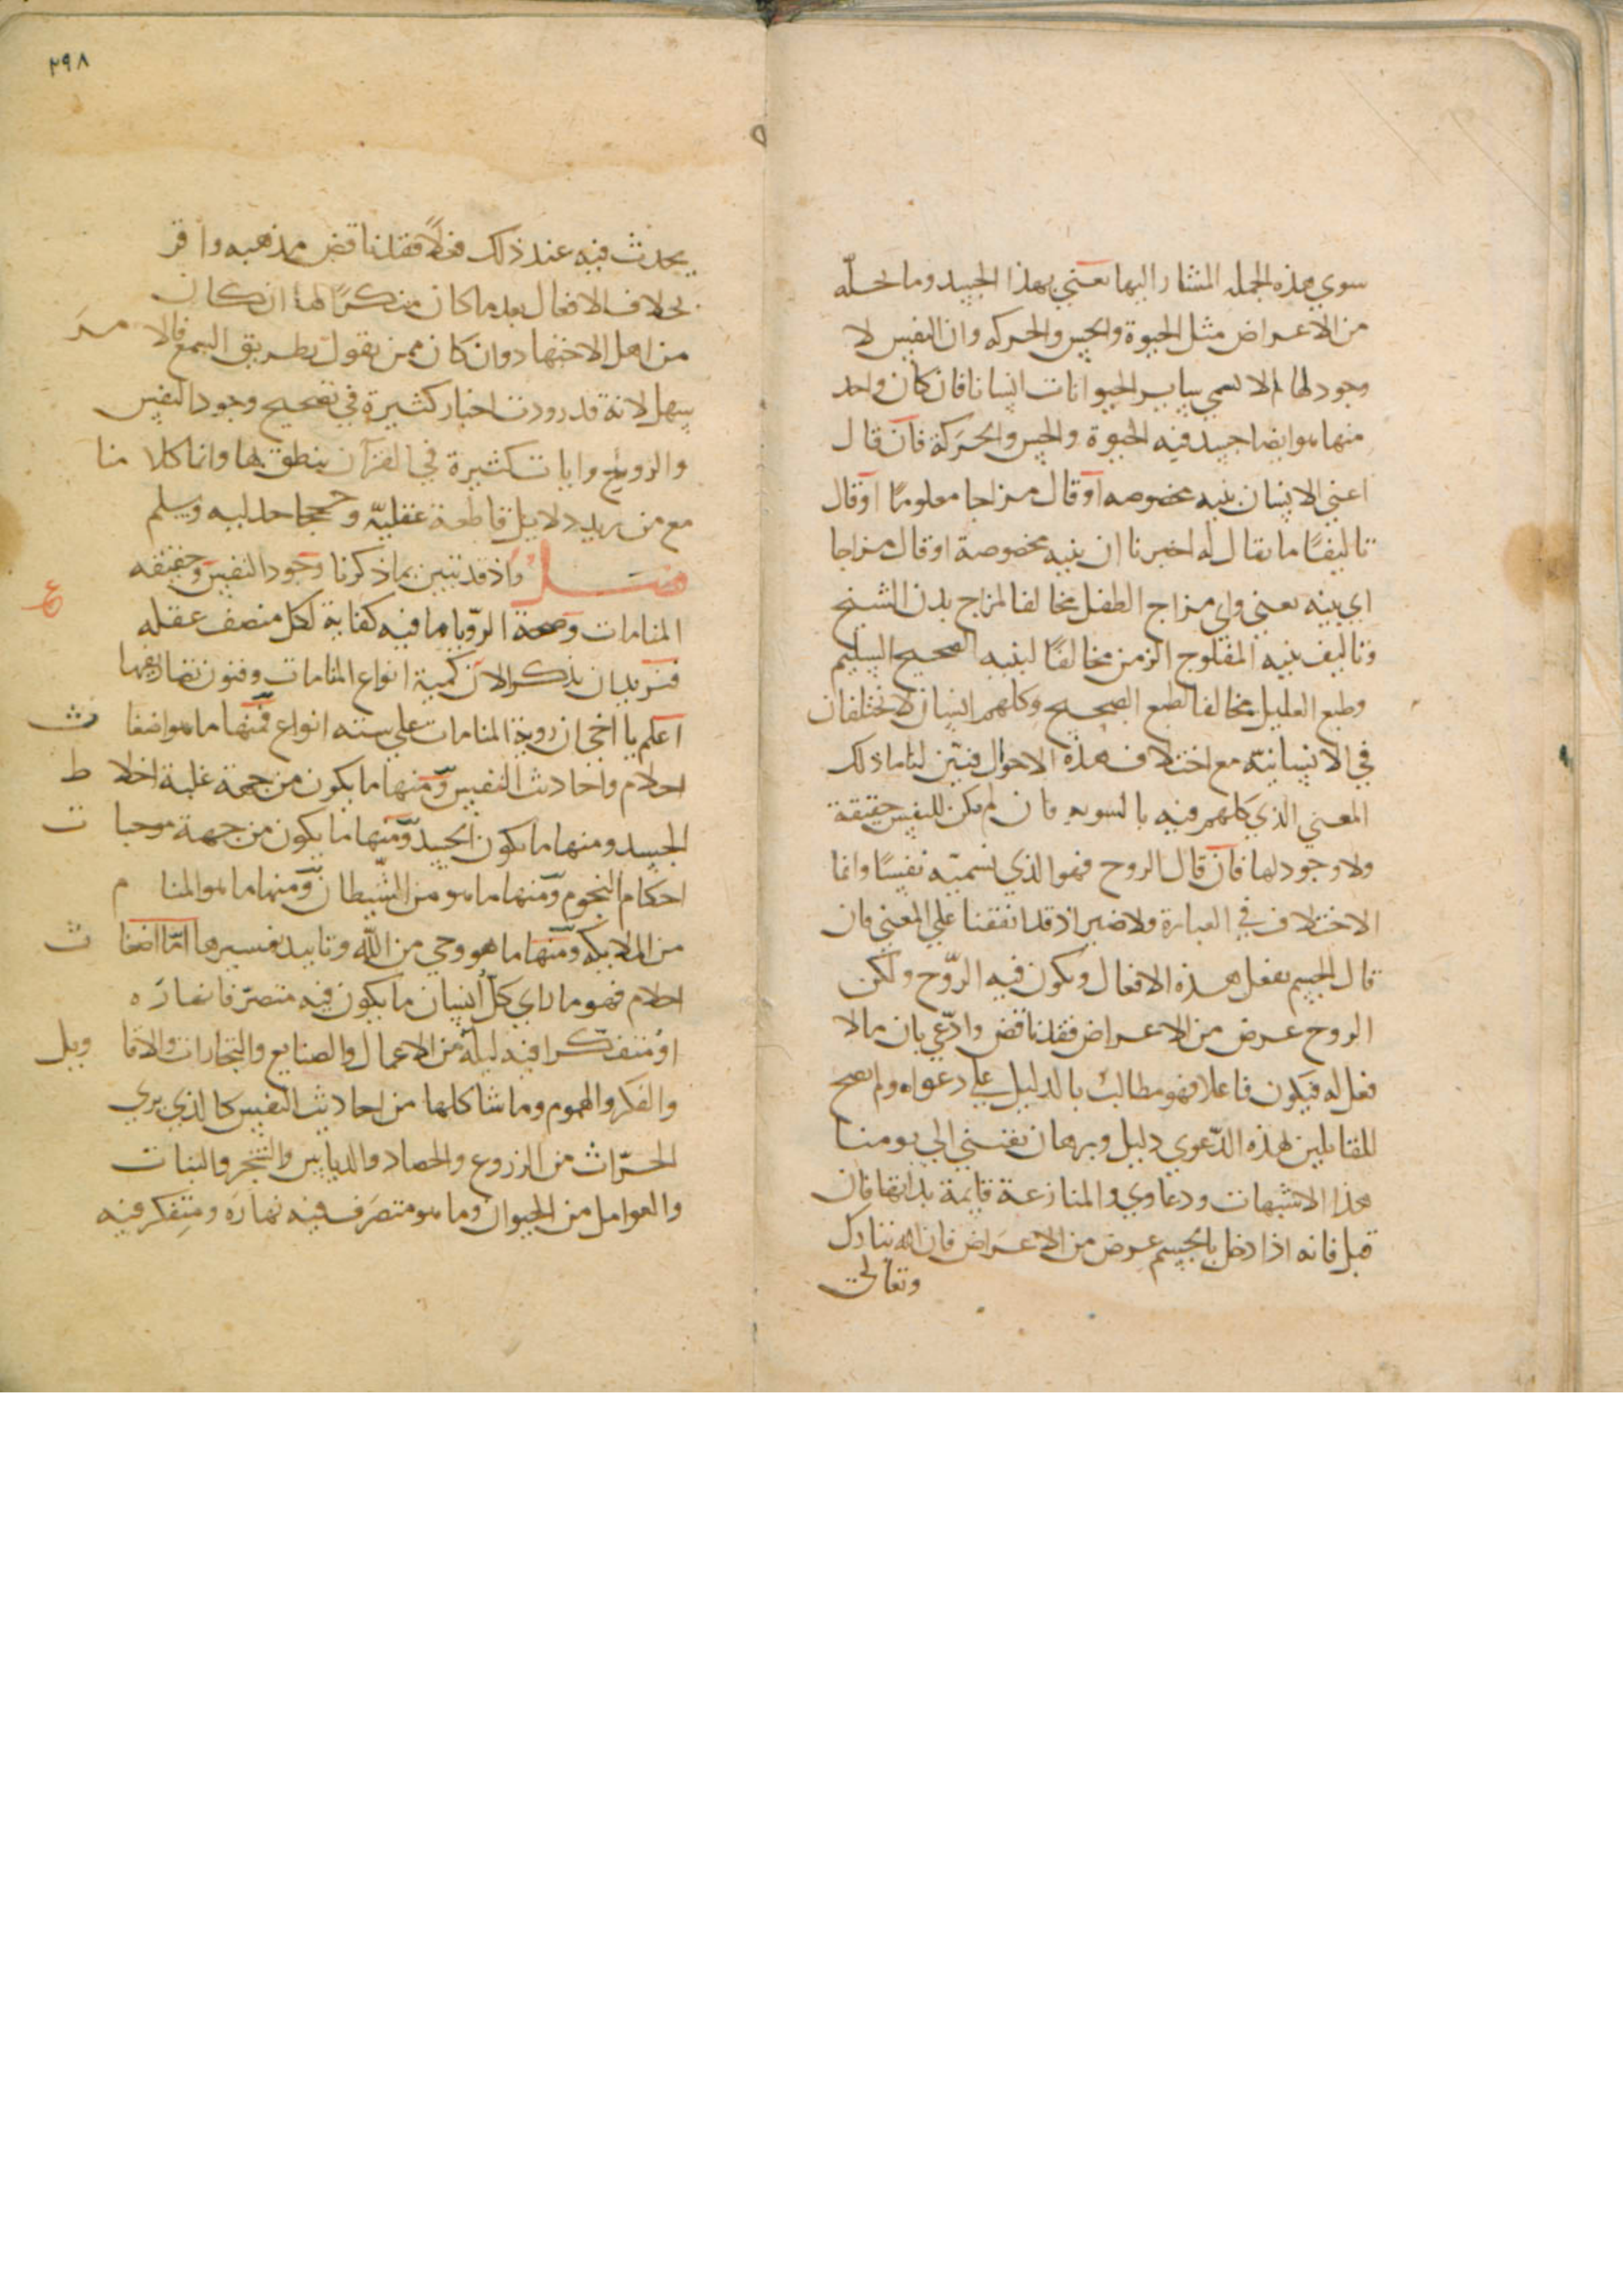 سوي هذه الجمله المشار اليها تعني بهذا الجسد وما يحله
من الاعراض مثل الحيوة والحس والحركه وان النفس لا
وجود لها لم لا نسمي ساير الحيوانات انسانا فان كان واحد
منها هو ايضا جسد فيه الحيوة والحس والحركة فان قال
اعني الانسان بنيه مخصوصه او قال مزاجا معلوما او قال
تاليفا ما يقال له اخبرنا ان بنيه مخصوصة او قال مزاجا
اي بنيه تعني واي مزاج الطفل مخالفا لمزاج بدن الشيخ
وتاليف بنيه المفلوج الزمن مخالفا لبنيه الصحيح السليم
وطبع العليل مخالفا لطبع الصحيح وكلهم انسان لا يختلفان
في الانسانية مع اختلاف هذه الاحوال فبين لنا ما ذلك
المعني الذي كلهم فيه بالسويه فان لم يكن للنفس حقيقة
ولا وجود لها فان قال الروح فهو الذي نسميه نفسا وانما
الاختلاف في العبارة ولا ضير اذ قد اتفقنا علي المعني فان
قال الجسم يفعل هذه الافعال ويكون فيه الروح ولكن
الروح عرض من الاعراض فقد ناقض وادعي بان ما لا
فعل له فيكون فاعلا فهو مطالب بالدليل علي دعواه ولم يصح
للقايلين لهذه الدعوي دليل وبرهان الي يومنا
هذا الا شبهات ودعاوي والمنازعة قايمة بذاتها فان
قيل فانه اذا دخل بالجسم عرض من الاعراض فان الله تبارك
وتعالي
٢٩٨
يحدث فيه عند ذلك فعلا فقد ناقض مذهبه واقر
بخلاف الافعال بعد ما كان منكرا لها ان كان
من اهل الاجتهاد وان كان ممن يقول بطريق السمع فالامر
سهل لانه قد رودت اخبار كثيرة في تصحيح وجود النفس
والروح وايات كثيرة في القرآن ينطق بها وانما كلامنا
مع من يريد دلايل قاطعة عقلية وحججا جدليه ويسلم
فصل واذ قد تبين بما ذكرنا وجود النفس وحقيقه
المنامات وصحة الرويا ما فيه كفاية لكل منصف عقله
فنريد ان نذكر الان كمية انواع المنامات وفنون تصاريفها
اعلم يا اخي ان روية المنامات علي سته انواع فمنها ما هو اضغاث
احلام واحاديث النفس ومنها ما يكون من جهة غلبة اخلاط
الجسد ومنها ما يكون الجسد ومنها ما يكون من جهة موجبات
احكام النجوم ومنها ما هو من الشيطان ومنها ما هو المنام
من الملايكه ومنها ما هو وحي من الله وتاييد تفسيرها اما اضغاث
احلام فهو ما راي كل انسان ما يكون فيه متصرفا نهاره
او متفكرا فيه ليله من الاعمال والصنايع والتجارات والاقاويل
والفكر والهموم وما شاكلها من احاديث النفس كالذي يري
الحراث من الزروع والحصاد والدياس والشجر والنبات
والعوامل من الحيوان وما هو متصرف فيه نهاره ومتفكر فيه